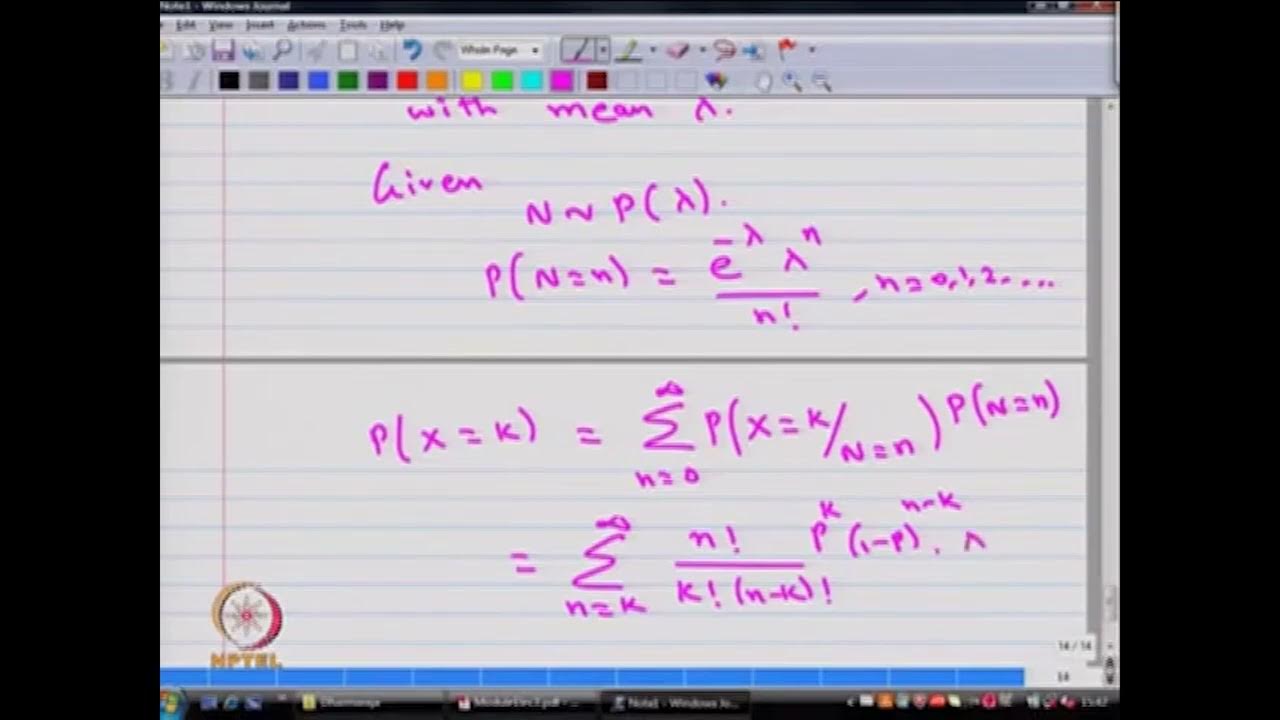 Note1 - Windows Journal
Edit View Insert Actions Tools Help
Whole Page
with mean λ.
Given
N ~ P(λ).
P(N=n) = e^{-λ} λ^n / n! , n=0,1,2.....
P(X=K) = ∑_{n=0}^{∞} P(X=K/N=n) P(N=n)
= ∑_{n=K}^{∞} n! / K!(n-K)! P^K (1-P)^{n-K} . λ
NPTEL
14 / 14
14
Note1 - Windows Jo...
15:42